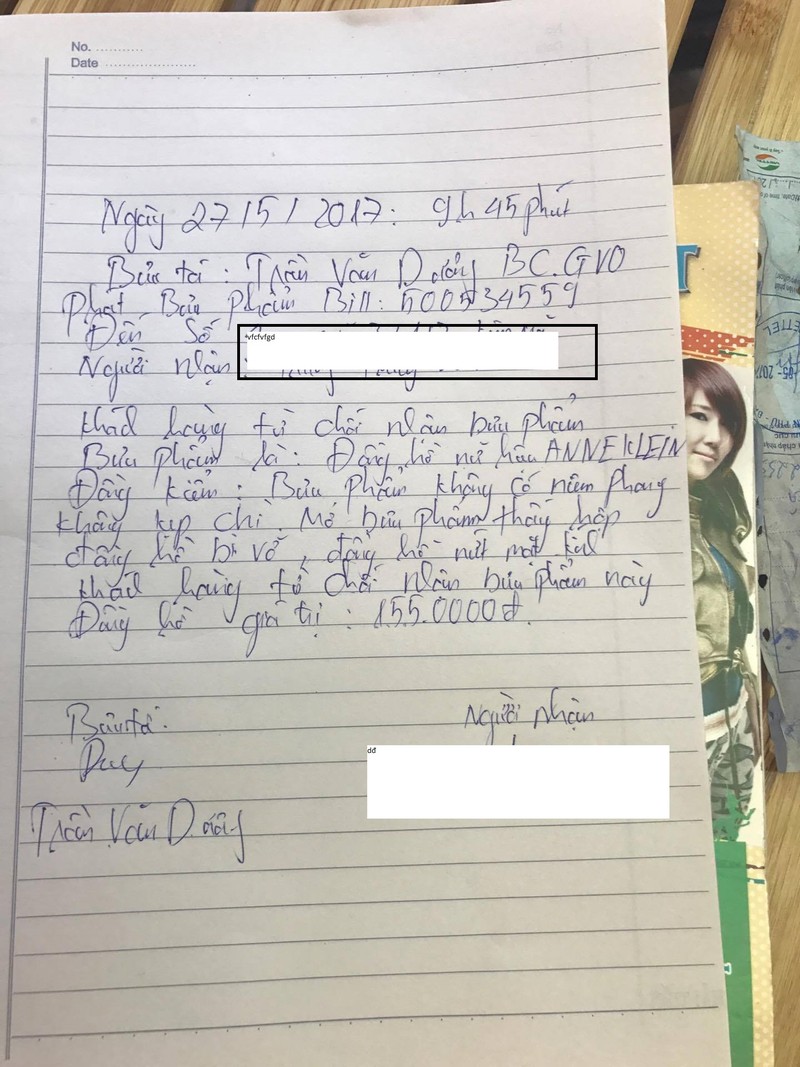 No. ............
Date ......................
Ngày 27/5/2017: 9h 45 phút
Bưu tá: Trần Văn Doáng BC.GVO
Phát Bưu phẩm Bill: 500534559
Đến số
*vfcfvfgd
Người nhận:
khách hàng từ chối nhận bưu phẩm
Bưu phẩm là: Đồng hồ nữ hiệu ANNE KLEIN
Đồng kiểm: Bưu phẩm không có niêm phong
không kẹp chì. Mở bưu phẩm thấy hộp
đồng hồ bị vỡ, đồng hồ nứt mặt
khách hàng từ chối nhận bưu phẩm này
Đồng hồ giá trị: 155.0000đ.
Bưu tá: Người nhận
dđ
Trần Văn Doáng